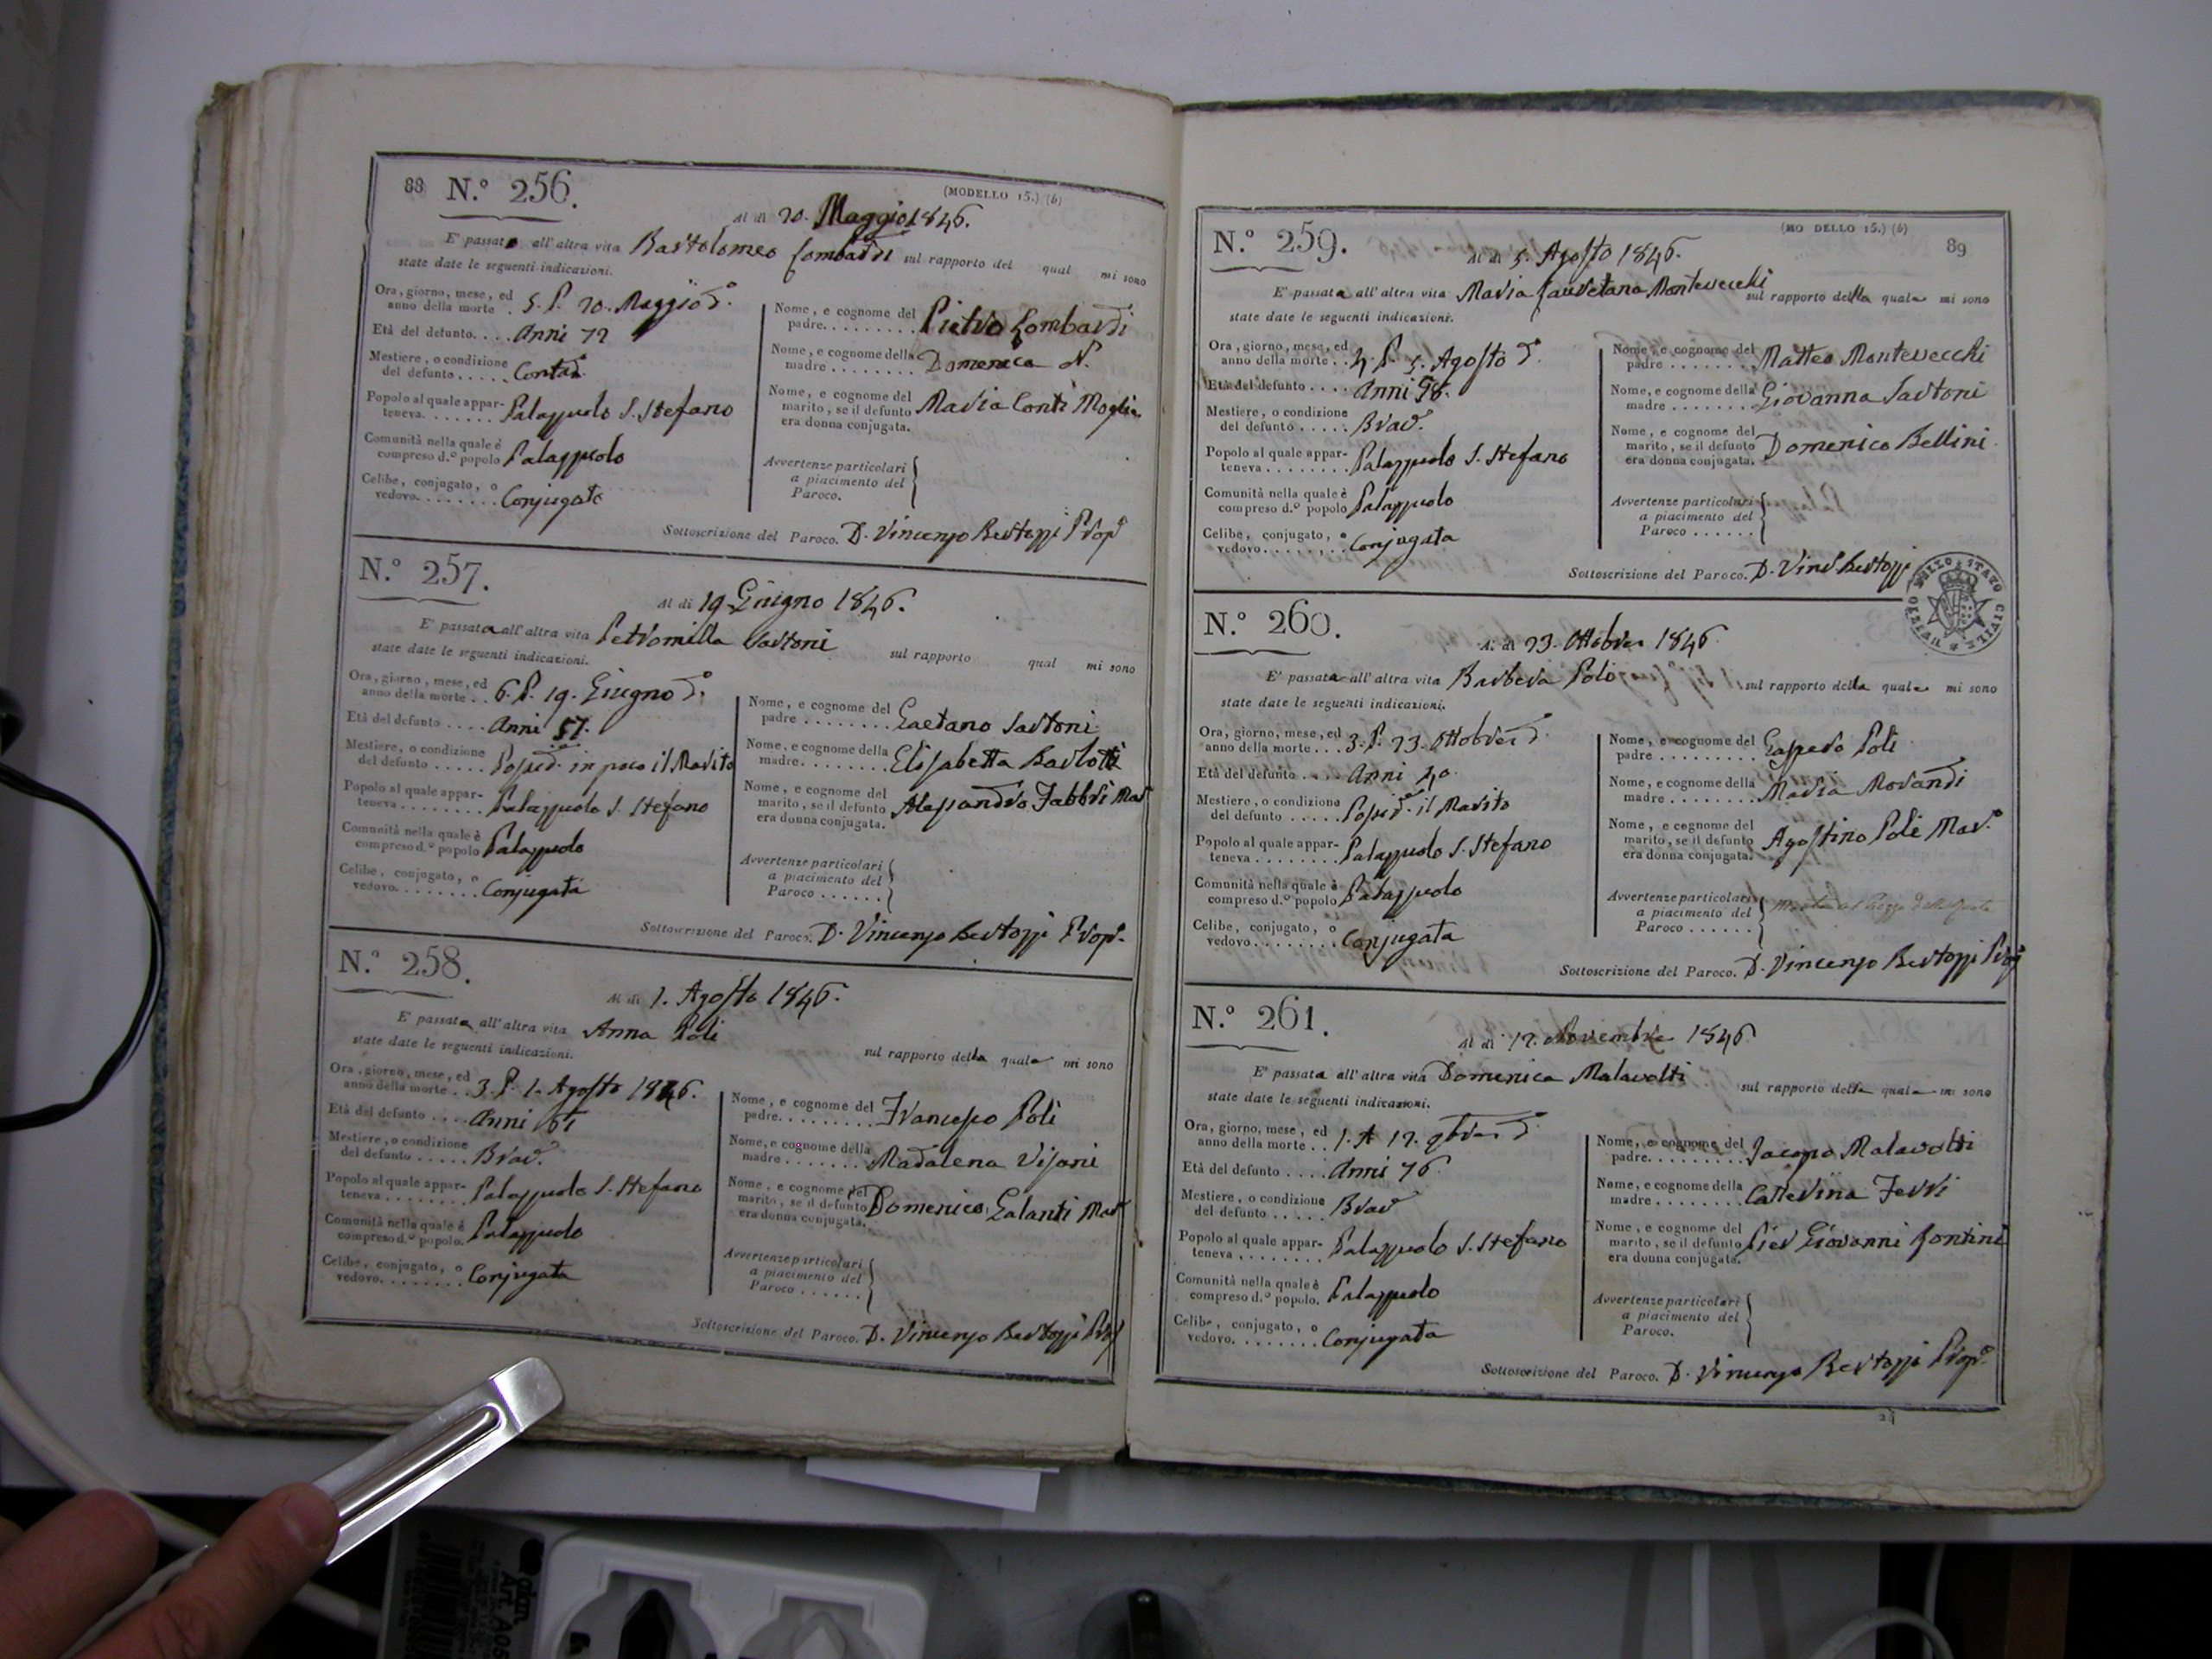 88 N.º 256.
(MODELLO 15.) (b)
Al di 20. Maggio 1846.
E' passato all'altra vita Bartolomeo Lombardi sul rapporto del qual mi sono
state date le seguenti indicazioni.
Ora, giorno, mese, ed
anno della morte . 5. P. 20. Maggio dº.
Età del defunto. . . . Anni 72
Mestiere, o condizione
del defunto . . . . . Contad.
Popolo al quale appar-
teneva. . . . . . . Palazzuolo S. Stefano
Comunità nella quale è
compreso d.º popolo Palazzuolo
Celibe, conjugato, o
vedovo. . . . . . . . Conjugato
Nome, e cognome del
padre. . . . . . . . . Pietro Lombardi
Nome, e cognome della
madre . . . . . . . . Domenica N.
Nome, e cognome del
marito, se il defunto Maria Conti Moglie
era donna conjugata.
Avvertenze particolari
a piacimento del
Paroco.
Sottoscrizione del Paroco. D. Vincenzo Bertozzi Propº
N.º 257.
Al di 19. Giugno 1846.
E' passata all'altra vita Petromilla Sartoni sul rapporto qual mi sono
state date le seguenti indicazioni.
Ora, giorno, mese, ed
anno della morte . . 6. P. 19. Giugno dº.
Età del defunto . . . . Anni 57.
Mestiere, o condizione
del defunto . . . . . Possid. in poco il Marito
Popolo al quale appar-
teneva . . . . . . . Palazzuolo S. Stefano
Comunità nella quale è
compreso d.º popolo Palazzuolo
Celibe, conjugato, o
vedovo. . . . . . . . Conjugata
Nome, e cognome del
padre . . . . . . . . Gaetano Sartoni
Nome, e cognome della
madre. . . . . . . . . Elisabetta Barlotti
Nome, e cognome del
marito, se il defunto Alessandro Fabbri Mar
era donna conjugata.
Avvertenze particolari
a piacimento del
Paroco . . . . . .
Sottoscrizione del Paroco. D. Vincenzo Bertozzi Prop.
N.º 258.
Al di 1. Agosto 1846.
E' passata all'altra vita Anna Poli sul rapporto della quale mi sono
state date le seguenti indicazioni.
Ora, giorno, mese, ed
anno della morte . . 3. P. 1. Agosto 1846.
Età del defunto . . . . Anni
Mestiere, o condizione
del defunto . . . . . Brac.
Popolo al quale appar-
teneva . . . . . . . . Palazzuolo S. Stefano
Comunità nella quale è
compreso d.º popolo. Palazzuolo
Celibe, conjugato, o
vedovo. . . . . . . . Conjugata
Nome, e cognome del
padre. . . . . . . . . Francesco Poli
Nome, e cognome della
madre . . . . . . . Madalena Visani
Nome, e cognome del
marito, se il defunto Domenico Galanti Mar
era donna conjugata.
Avvertenze particolari
a piacimento del
Paroco . . . . . .
Sottoscrizione del Paroco. D. Vincenzo Bertozzi Prop
N.º 259.
(MO DELLO 15.) (b)
89
Al di 5. Agosto 1846.
E' passata all'altra vita Maria Lauretana Montevecchi sul rapporto della quale mi sono
state date le seguenti indicazioni.
Ora, giorno, mese, ed
anno della morte . . 4. P. 5. Agosto dº.
Età del defunto . . . . Anni 98.
Mestiere, o condizione
del defunto . . . . . Brac.
Popolo al quale appar-
teneva . . . . . . . . Palazzuolo S. Stefano
Comunità nella quale è
compreso d.º popolo Palazzuolo
Celibe, conjugato, o
vedovo. . . . . . . . Conjugata
Nome, e cognome del
padre . . . . . . . . Matteo Montevecchi
Nome, e cognome della
madre . . . . . . . . Giovanna Sartoni
Nome, e cognome del
marito, se il defunto Domenico Bellini
era donna conjugata.
Avvertenze particolari
a piacimento del
Paroco . . . . . .
Sottoscrizione del Paroco. D. Vinc. Bertozzi
UFIZIO DELLO STATO CIVILE
N.º 260.
Al di 23. Ottobre 1846
E' passata all'altra vita Barbera Poli sul rapporto della quale mi sono
state date le seguenti indicazioni.
Ora, giorno, mese, ed
anno della morte . . . 3. P. 23. Ottobre dº.
Età del defunto . . . . Anni 40.
Mestiere, o condizione
del defunto . . . . . Possid. il Marito
Popolo al quale appar-
teneva . . . . . . . . Palazzuolo S. Stefano
Comunità nella quale è
compreso d.º popolo Palazzuolo
Celibe, conjugato, o
vedovo. . . . . . . . Conjugata
Nome, e cognome del
padre . . . . . . . . Gaspero Poli
Nome, e cognome della
madre . . . . . . . . Maria Morandi
Nome, e cognome del
marito, se il defunto Agostino Poli Mar.º
era donna conjugata.
Avvertenze particolari
a piacimento del
Paroco . . . . . .
Sottoscrizione del Paroco. D. Vincenzo Bertozzi Prop
N.º 261.
Al di 12. Novembre 1846
E' passata all'altra vita Domenica Malavolti sul rapporto della quale mi sono
state date le seguenti indicazioni.
Ora, giorno, mese, ed
anno della morte . . 1. A 12. 9bre dº
Età del defunto . . . . Anni 76
Mestiere, o condizione
del defunto . . . . . Brac
Popolo al quale appar-
teneva . . . . . . . Palazzuolo S. Stefano
Comunità nella quale è
compreso d.º popolo. Palazzuolo
Celibe, conjugato, o
vedovo. . . . . . . . Conjugata
Nome, e cognome del
padre. . . . . . . . . Jacopo Malavolti
Nome, e cognome della
madre . . . . . . . . Catterina Ferri
Nome, e cognome del
marito, se il defunto Pier Giovanni Fontini
era donna conjugata.
Avvertenze particolari
a piacimento del
Paroco.
Sottoscrizione del Paroco. D. Vincenzo Bertozzi Propº.
Art. A05